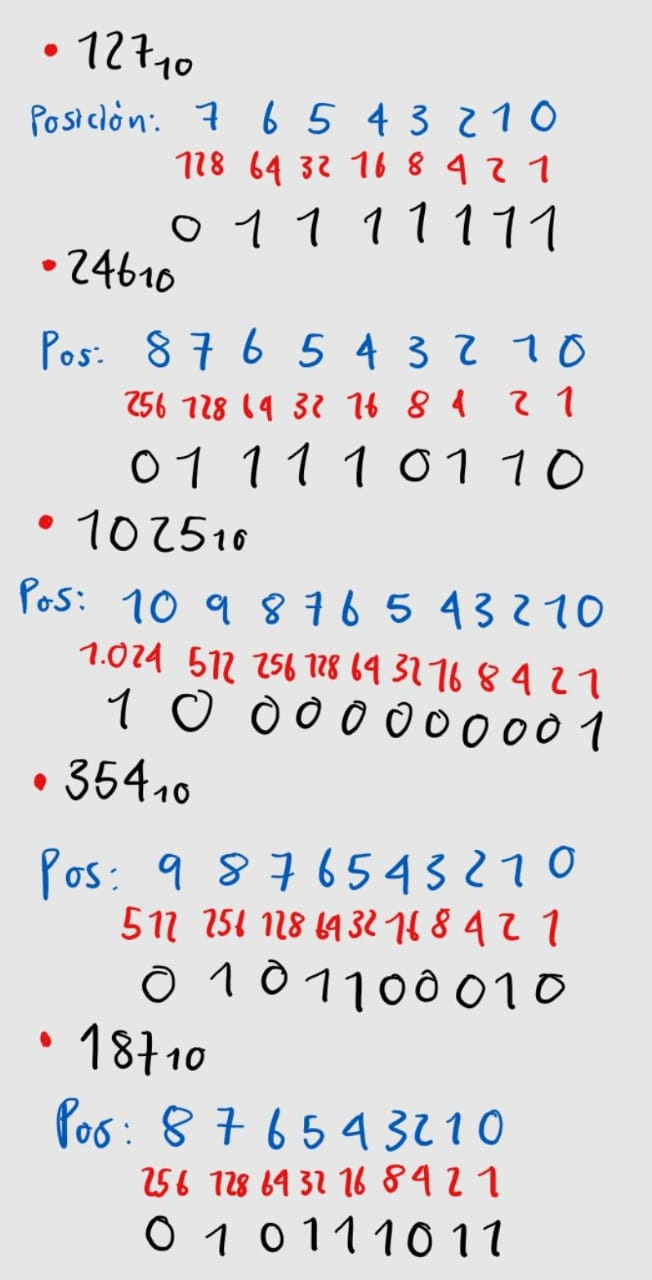 • 127₁₀
Posición: 7 6 5 4 3 2 1 0
128 64 32 16 8 4 2 1
0 1 1 1 1 1 1 1
• 246₁₀
Pos: 8 7 6 5 4 3 2 1 0
256 128 64 32 16 8 4 2 1
0 1 1 1 1 0 1 1 0
• 1025₁₀
Pos: 10 9 8 7 6 5 4 3 2 1 0
1.024 512 256 128 64 32 16 8 4 2 1
1 0 0 0 0 0 0 0 0 0 1
• 354₁₀
Pos: 9 8 7 6 5 4 3 2 1 0
512 256 128 64 32 16 8 4 2 1
0 1 0 1 1 0 0 0 1 0
• 187₁₀
Pos: 8 7 6 5 4 3 2 1 0
256 128 64 32 16 8 4 2 1
0 1 0 1 1 1 0 1 1